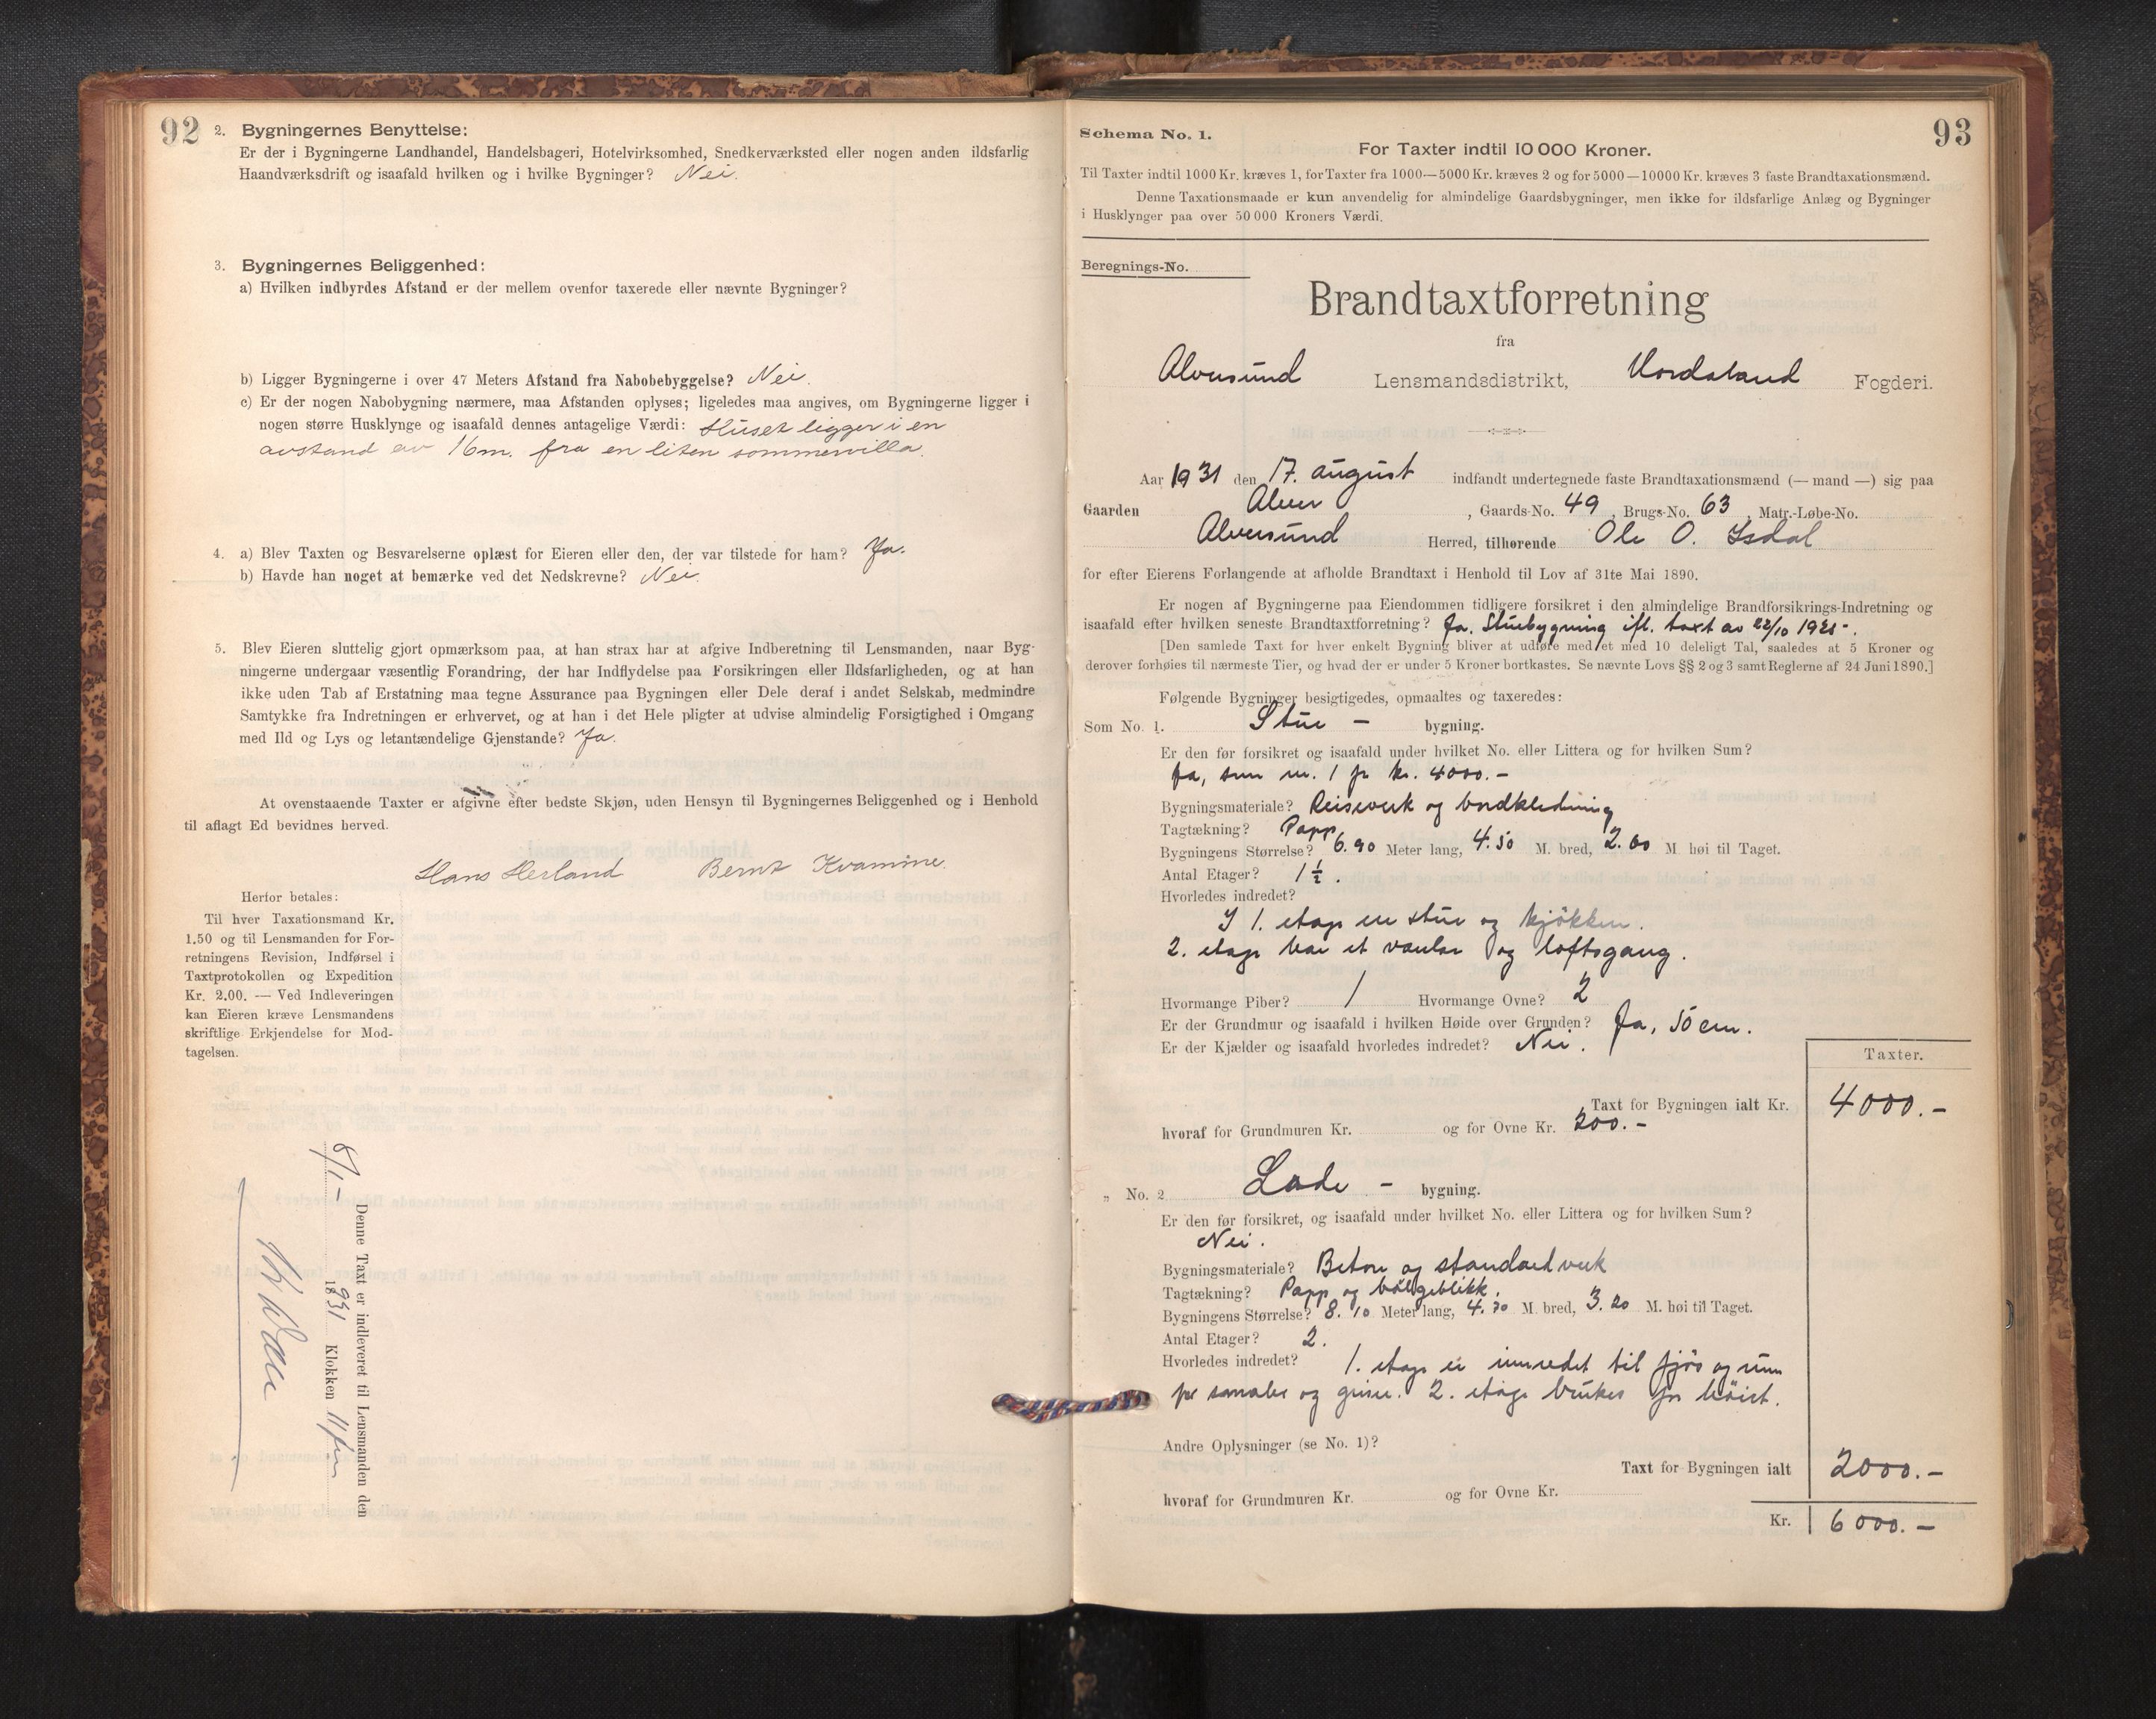 92
2. Bygningernes Benyttelse:
Er der i Bygningerne Landhandel, Handelsbageri, Hotelvirksomhed, Snedkerværksted eller nogen anden ildsfarlig
Haandværksdrift og isaafald hvilken og i hvilke Bygninger? Nei.
3. Bygningernes Beliggenhed:
a) Hvilken indbyrdes Afstand er der mellem ovenfor taxerede eller nævnte Bygninger?
b) Ligger Bygningerne i over 47 Meters Afstand fra Nabobebyggelse? Nei.
c) Er der nogen Nabobygning nærmere, maa Afstanden oplyses; ligeledes maa angives, om Bygningerne ligger i
nogen større Husklynge og isaafald dennes antagelige Værdi: Huset ligger i en
avstand av 16m. fra en liten sommervilla.
4. a) Blev Taxten og Besvarelserne oplæst for Eieren eller den, der var tilstede for ham? Ja.
b) Havde han noget at bemærke ved det Nedskrevne? Nei.
5. Blev Eieren sluttelig gjort opmærksom paa, at han strax har at afgive Indberetning til Lensmanden, naar Byg-
ningerne undergaar væsentlig Forandring, der har Indflydelse paa Forsikringen eller Ildsfarligheden, og at han
ikke uden Tab af Erstatning maa tegne Assurance paa Bygningen eller Dele deraf i andet Selskab, medmindre
Samtykke fra Indretningen er erhvervet, og at han i det Hele pligter at udvise almindelig Forsigtighed i Omgang
med Ild og Lys og letantændelige Gjenstande? Ja.
At ovenstaaende Taxter er afgivne efter bedste Skjøn, uden Hensyn til Bygningernes Beliggenhed og i Henhold
til aflagt Ed bevidnes herved.
Hans Herland Bernt Kvamme.
Herfor betales:
Til hver Taxationsmand Kr.
1.50 og til Lensmanden for For-
retningens Revision, Indførsel i
Taxtprotokollen og Expedition
Kr. 2.00. — Ved Indleveringen
kan Eieren kræve Lensmandens
skriftlige Erkjendelse for Mod-
tagelsen.
Denne Taxt er indleveret til Lensmanden den
1931 Klokken 11
93
Schema No. 1.
For Taxter indtil 10 000 Kroner.
Til Taxter indtil 1000 Kr. kræves 1, for Taxter fra 1000—5000 Kr. kræves 2 og for 5000—10000 Kr. kræves 3 faste Brandtaxationsmænd.
Denne Taxationsmaade er kun anvendelig for almindelige Gaardsbygninger, men ikke for ildsfarlige Anlæg og Bygninger
i Husklynger paa over 50 000 Kroners Værdi.
Beregnings-No.
Brandtaxtforretning
fra
Alversund Lensmandsdistrikt, Nordhordland Fogderi.
Aar 1931 den 17. august indfandt undertegnede faste Brandtaxationsmænd (— mand —) sig paa
Gaarden Alver, Gaards-No. 49, Brugs-No. 63, Matr.-Løbe-No.
Alversund Herred, tilhørende Ole O. Isdal
for efter Eierens Forlangende at afholde Brandtaxt i Henhold til Lov af 31te Mai 1890.
Er nogen af Bygningerne paa Eiendommen tidligere forsikret i den almindelige Brandforsikrings-Indretning og
isaafald efter hvilken seneste Brandtaxtforretning? Ja. Stuebygning ifl. taxt av 22/10 1921-.
[Den samlede Taxt for hver enkelt Bygning bliver at udføre med et med 10 deleligt Tal, saaledes at 5 Kroner og
derover forhøies til nærmeste Tier, og hvad der er under 5 Kroner bortkastes. Se nævnte Lovs §§ 2 og 3 samt Reglerne af 24 Juni 1890.]
Følgende Bygninger besigtigedes, opmaaltes og taxeredes:
Som No. 1. Stue - bygning.
Er den før forsikret og isaafald under hvilket No. eller Littera og for hvilken Sum?
Ja, som nr. 1 for kr. 4000.-
Bygningsmateriale? Reisverk og bordkledning
Tagtækning? Papp
Bygningens Størrelse? 6.90 Meter lang, 4.50 M. bred, 2.60 M høi til Taget.
Antal Etager? 1½.
Hvorledes indredet?
I 1. etage en stue og kjøkken.
2. etage har et værelse og loftsgang.
Hvormange Piber? 1 Hvormange Ovne? 2
Er der Grundmur og isaafald i hvilken Høide over Grunden? Ja, 50 cm.
Er der Kjælder og isaafald hvorledes indredet? Nei.
Taxter.
Taxt for Bygningen ialt Kr. 4000.-
hvoraf for Grundmuren Kr. og for Ovne Kr. 200.-
„ No. 2 Løde - bygning.
Er den før forsikret, og isaafald under hvilket No. eller Littera og for hvilken Sum?
Nei.
Bygningsmateriale? Beton og standardverk
Tagtækning? Papp og bølgeblikk.
Bygningens Størrelse? 8.10 Meter lang, 4.70 M. bred, 3.20 M. høi til Taget.
Antal Etager? 2.
Hvorledes indredet? 1. etage er innredet til fjøs og rum
for smaler og griser. 2. etage brukes for høiet.
Andre Oplysninger (se No. 1)?
Taxt for Bygningen ialt 2000.-
hvoraf for Grundmuren Kr. og for Ovne Kr.
Kr. 6000.-